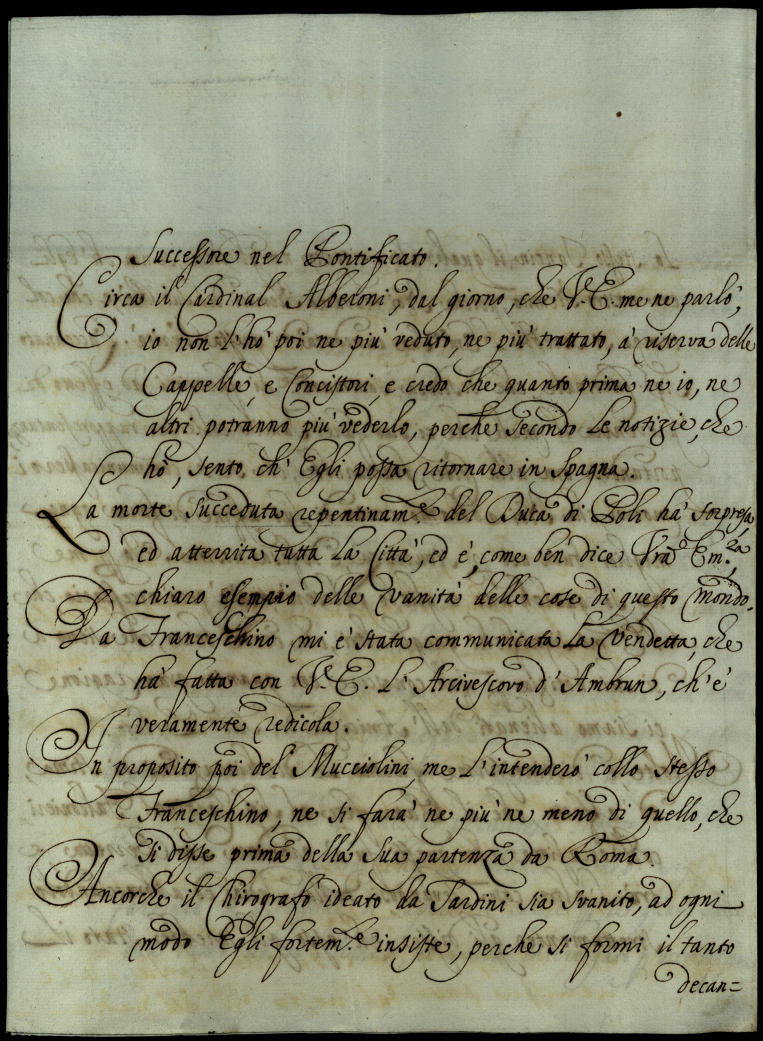 Successore nel Pontificato.
Circa il Cardinal Alberoni, dal giorno, che V. E. me ne parlò,
io non l'hò poi ne più veduto, ne più trattato, à riserva delle
Cappelle, e Concistori, e credo che quanto prima ne io, ne
altri potranno più vederlo, perche secondo le notizie, che
hò, sento, ch' Egli possa ritornare in Spagna.
La morte succeduta repentinam.e del Duca di Poli hà sorpresa,
ed atterrita tutta la Città, ed è, come ben dice Vrã Em.za,
chiaro esempio delle vanità delle cose di questo mondo.
Da Franceschino mi è stata communicata la vendetta, che
hà fatta con V. E. l'Arcivescovo d'Ambrun, ch'è
veramente redicola.
In proposito poi del Mucciolini, me l'intenderò collo stesso
Franceschino, ne si farà ne più ne meno di quello, che
si disse prima della sua partenza da Roma.
Ancorche il Chirografo ideato da Sardini sia svanito, ad ogni
modo Egli fortem.e insiste, perche si formi il tanto
decan=